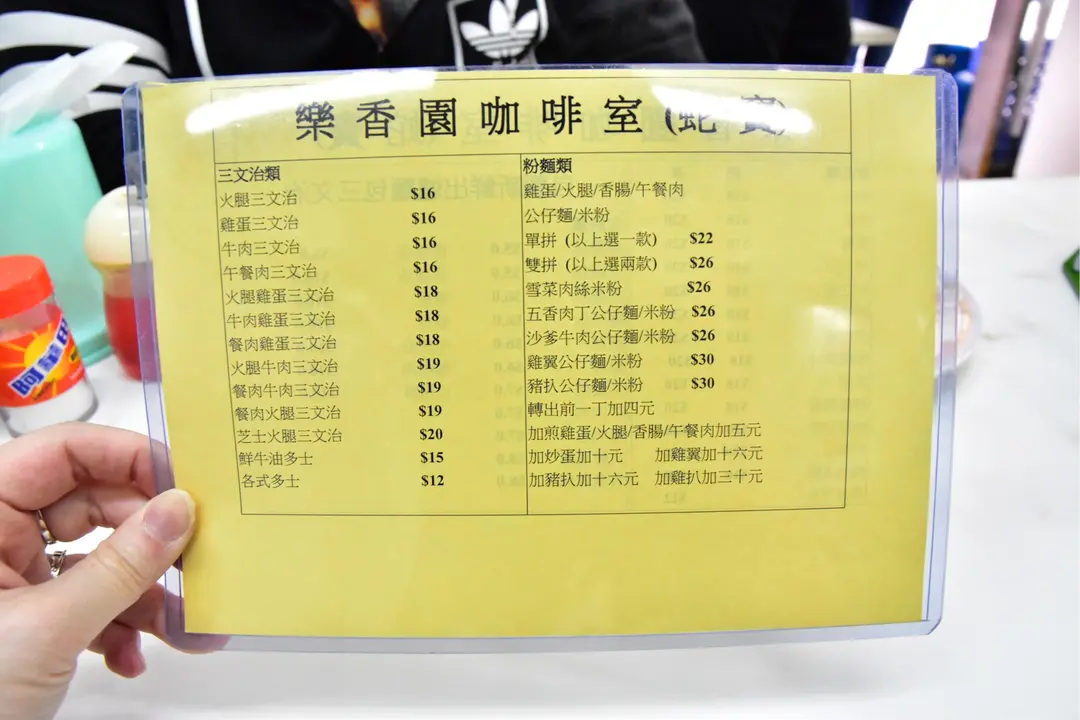 樂香園咖啡室(蛇竇)
三文治類
火腿三文治 $16
雞蛋三文治 $16
牛肉三文治 $16
午餐肉三文治 $16
火腿雞蛋三文治 $18
牛肉雞蛋三文治 $18
餐肉雞蛋三文治 $18
火腿牛肉三文治 $19
餐肉牛肉三文治 $19
餐肉火腿三文治 $19
芝士火腿三文治 $20
鮮牛油多士 $15
各式多士 $12
粉麵類
雞蛋/火腿/香腸/午餐肉
公仔麵/米粉
單拼 (以上選一款) $22
雙拼 (以上選兩款) $26
雪菜肉絲米粉 $26
五香肉丁公仔麵/米粉 $26
沙爹牛肉公仔麵/米粉 $26
雞翼公仔麵/米粉 $30
豬扒公仔麵/米粉 $30
轉出前一丁加四元
加煎雞蛋/火腿/香腸/午餐肉加五元
加炒蛋加十元 加雞翼加十六元
加豬扒加十六元 加雞扒加三十元
阿華田